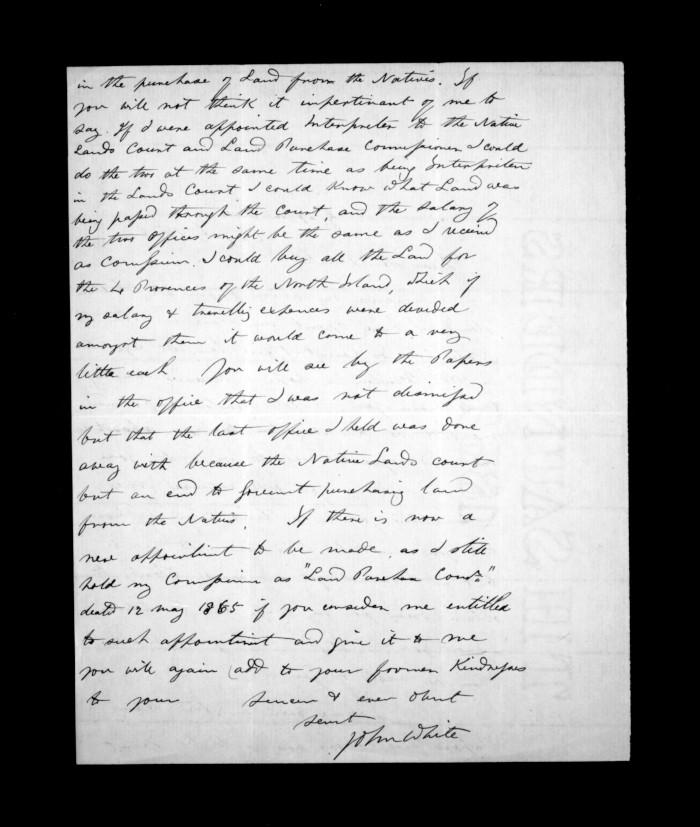 in the purchase of Land from the Natives. If
you will not think it impertinant of me to
say. If I were appointed Interpreter to the Native
Lands Court and Land Purchase Commissioner I could
do the two at the same time as being Interpreter
in the Lands Court I could know what Land was
being passed through the Court, and the salary of
the two offices might be the same as I received
as Comissioner. I could buy all the Land for
the 4 Provences of the North Island, which if
my salary & travelling expences were devided
amongst them it would come to a very
little each. You will see by the Papers
in the office that I was not dismissed
but that the last office I held was done
away with because the Native Lands court
put an end to Goverment purchasing land
from the Natives. If there is now a
new appointment to be made, as I still
hold my Comission as "Land Purchase Comr."
dated 12 may 1865 if you consider me entitled
to such appointment and give it to me
you will again add to your former Kindnesses
to your sincere & ever obent
servt
John White